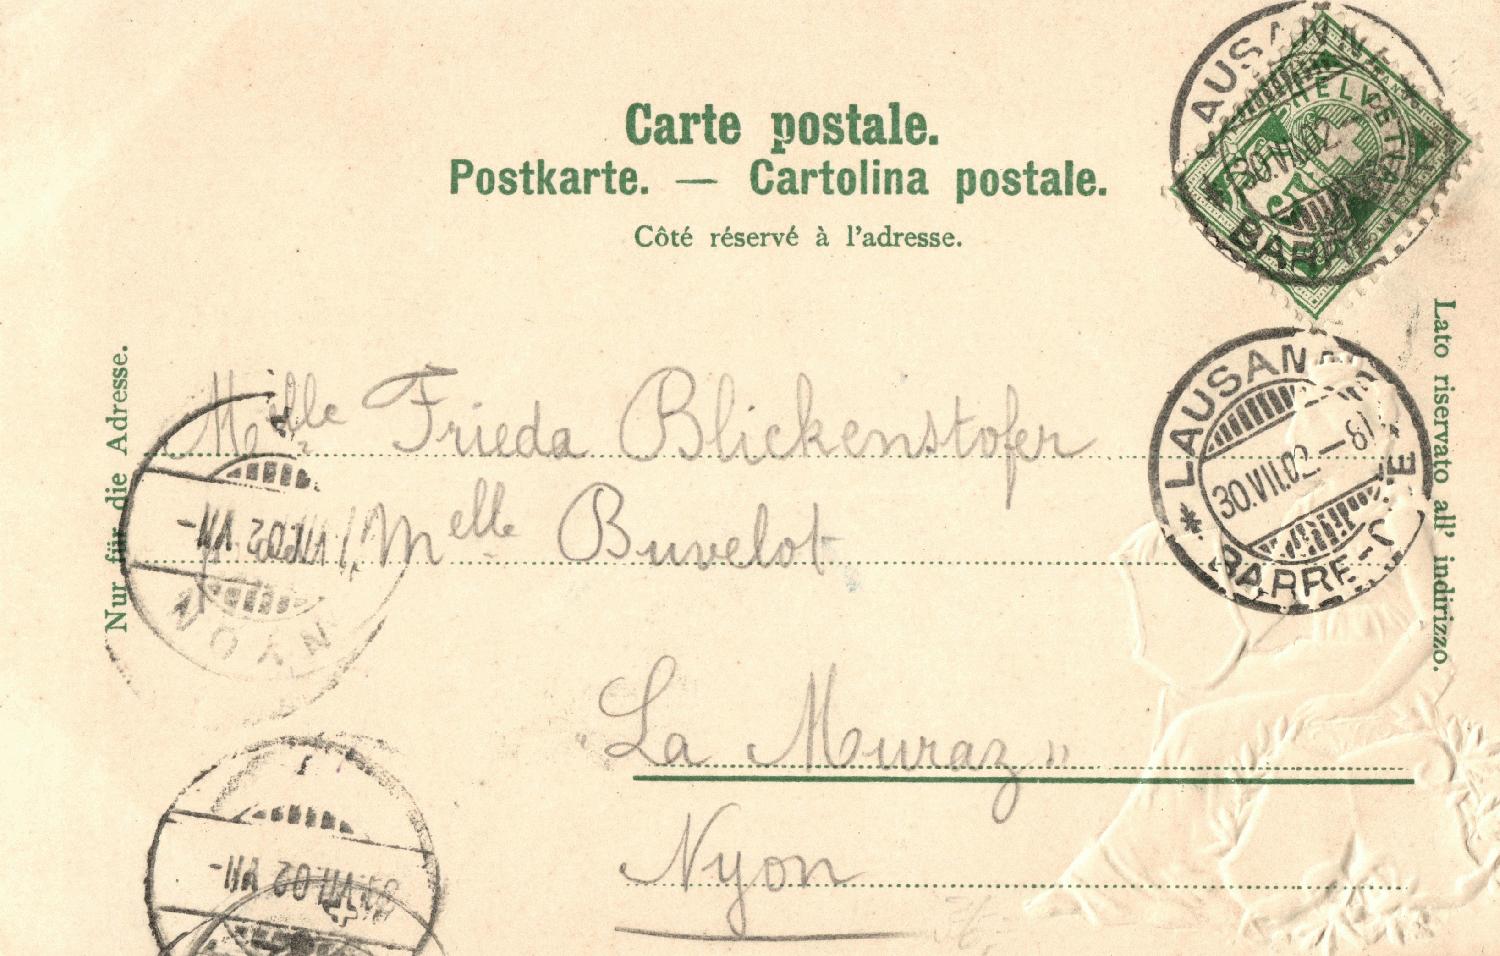 Carte postale.
Postkarte. — Cartolina postale.
Côté réservé à l'adresse.
Nur für die Adresse.
Lato riservato all' indirizzo.
HELVETIA
LAUSANNE
30.VII.02
BARRE
LAUSANNE
30.VII.02—8
* BARRE-
Melle Frieda Blickenstofer
Melle Buvelot
"La Muraz"
Nyon
VII.02 VII-
NYON
VII 02 VII-